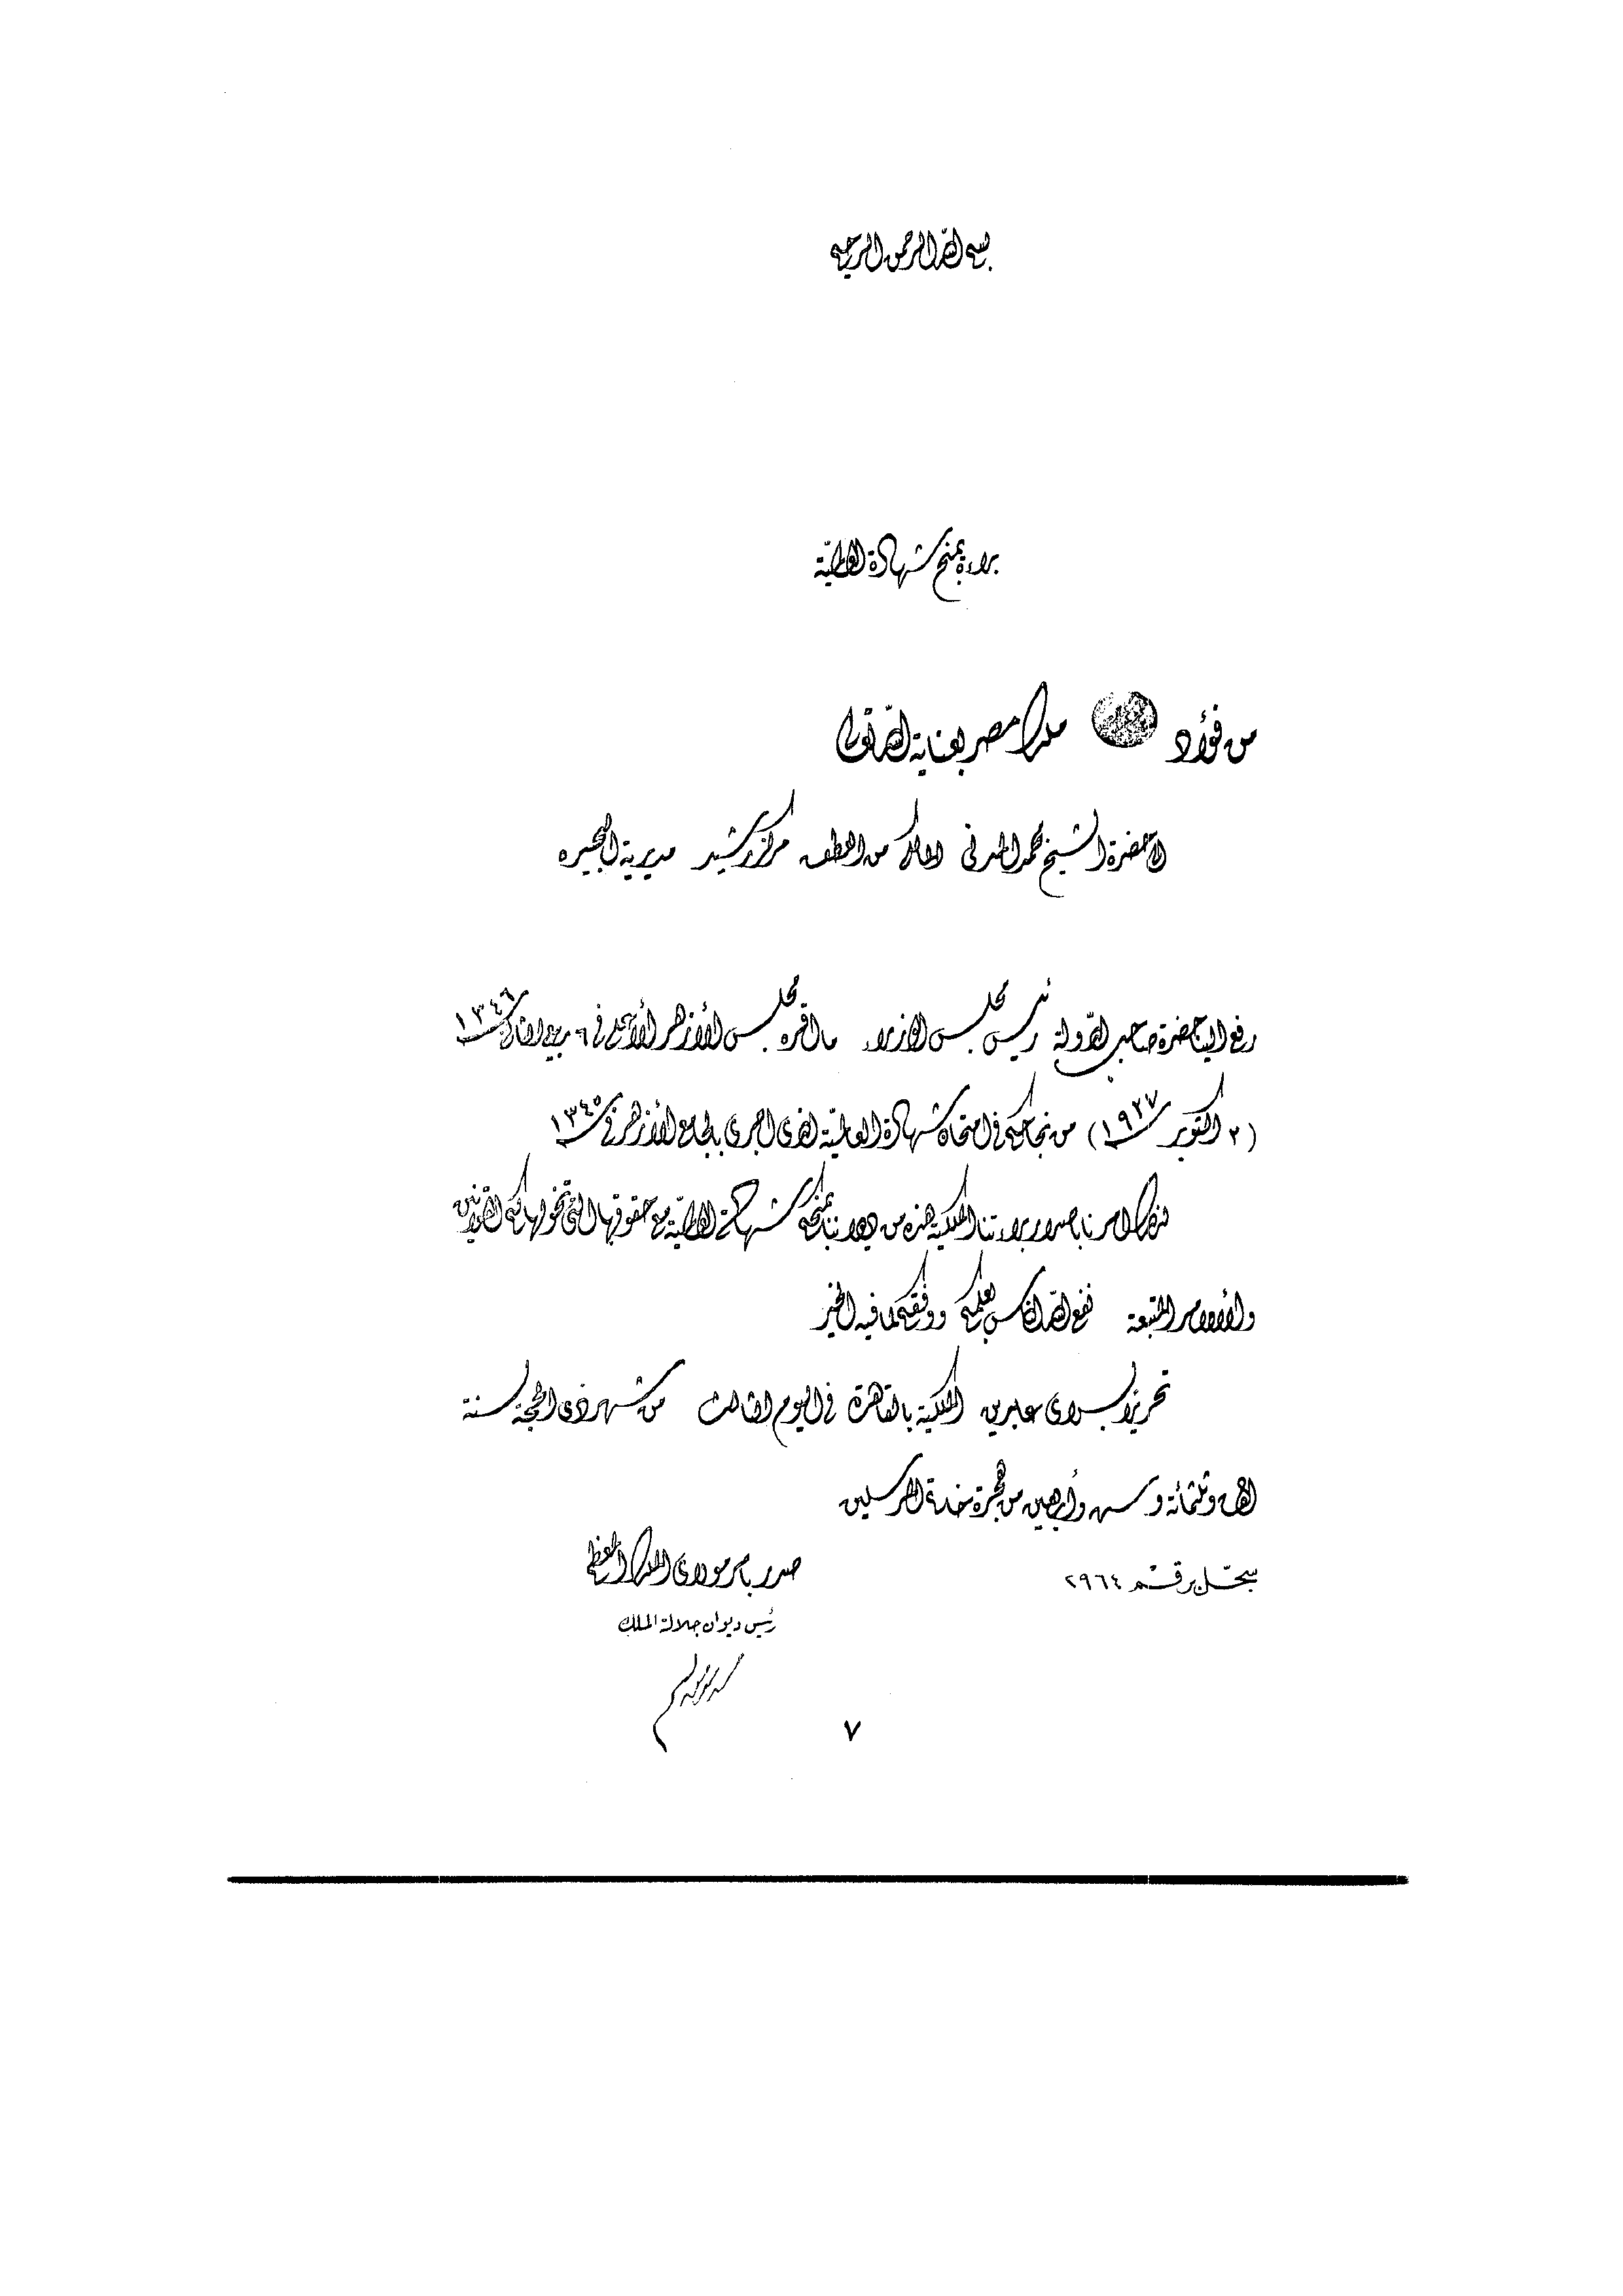 بسم الله الرحمن الرحيم
براءة بمنح شهادة العالمية
من فؤاد ملك مصر بعناية الله تعالى
إلى حضرة الشيخ محمد المدنى المالكى من العطف مركز رشيد مديرية البحيره
رفع الينا حضرة صاحب الدولة رئيس مجلس الوزراء ما اقره مجلس الأزهر الأعلى فى ٦ ربيع الثانى سنة ١٣٤٦
(٢ اكتوبر سنة ١٩٢٧) من نجاحكم فى امتحان شهادة العالمية الذى اجرى بالجامع الأزهر فى سنة ١٣٤٥
لذلك امرنا باصدار براءتنا الملكية هذه من ديواننا بمنحكم شهادة العالمية مع حقوقها التى تخولها لكم القوانين
والأوامر المتبعة نفع الله الناس بعلمكم ووفقكم لما فيه الخير
تحريرا بسراى عابدين الملكية بالقاهرة فى اليوم الثالث من شهر ذى الحجة سنة
الف وثلثمائة وست وأربعين من هجرة خاتم المرسلين
سجل برقم ٢٩٦٤
صدر بامر مولاى الملك المعظم
رئيس ديوان جلالة الملك
٧